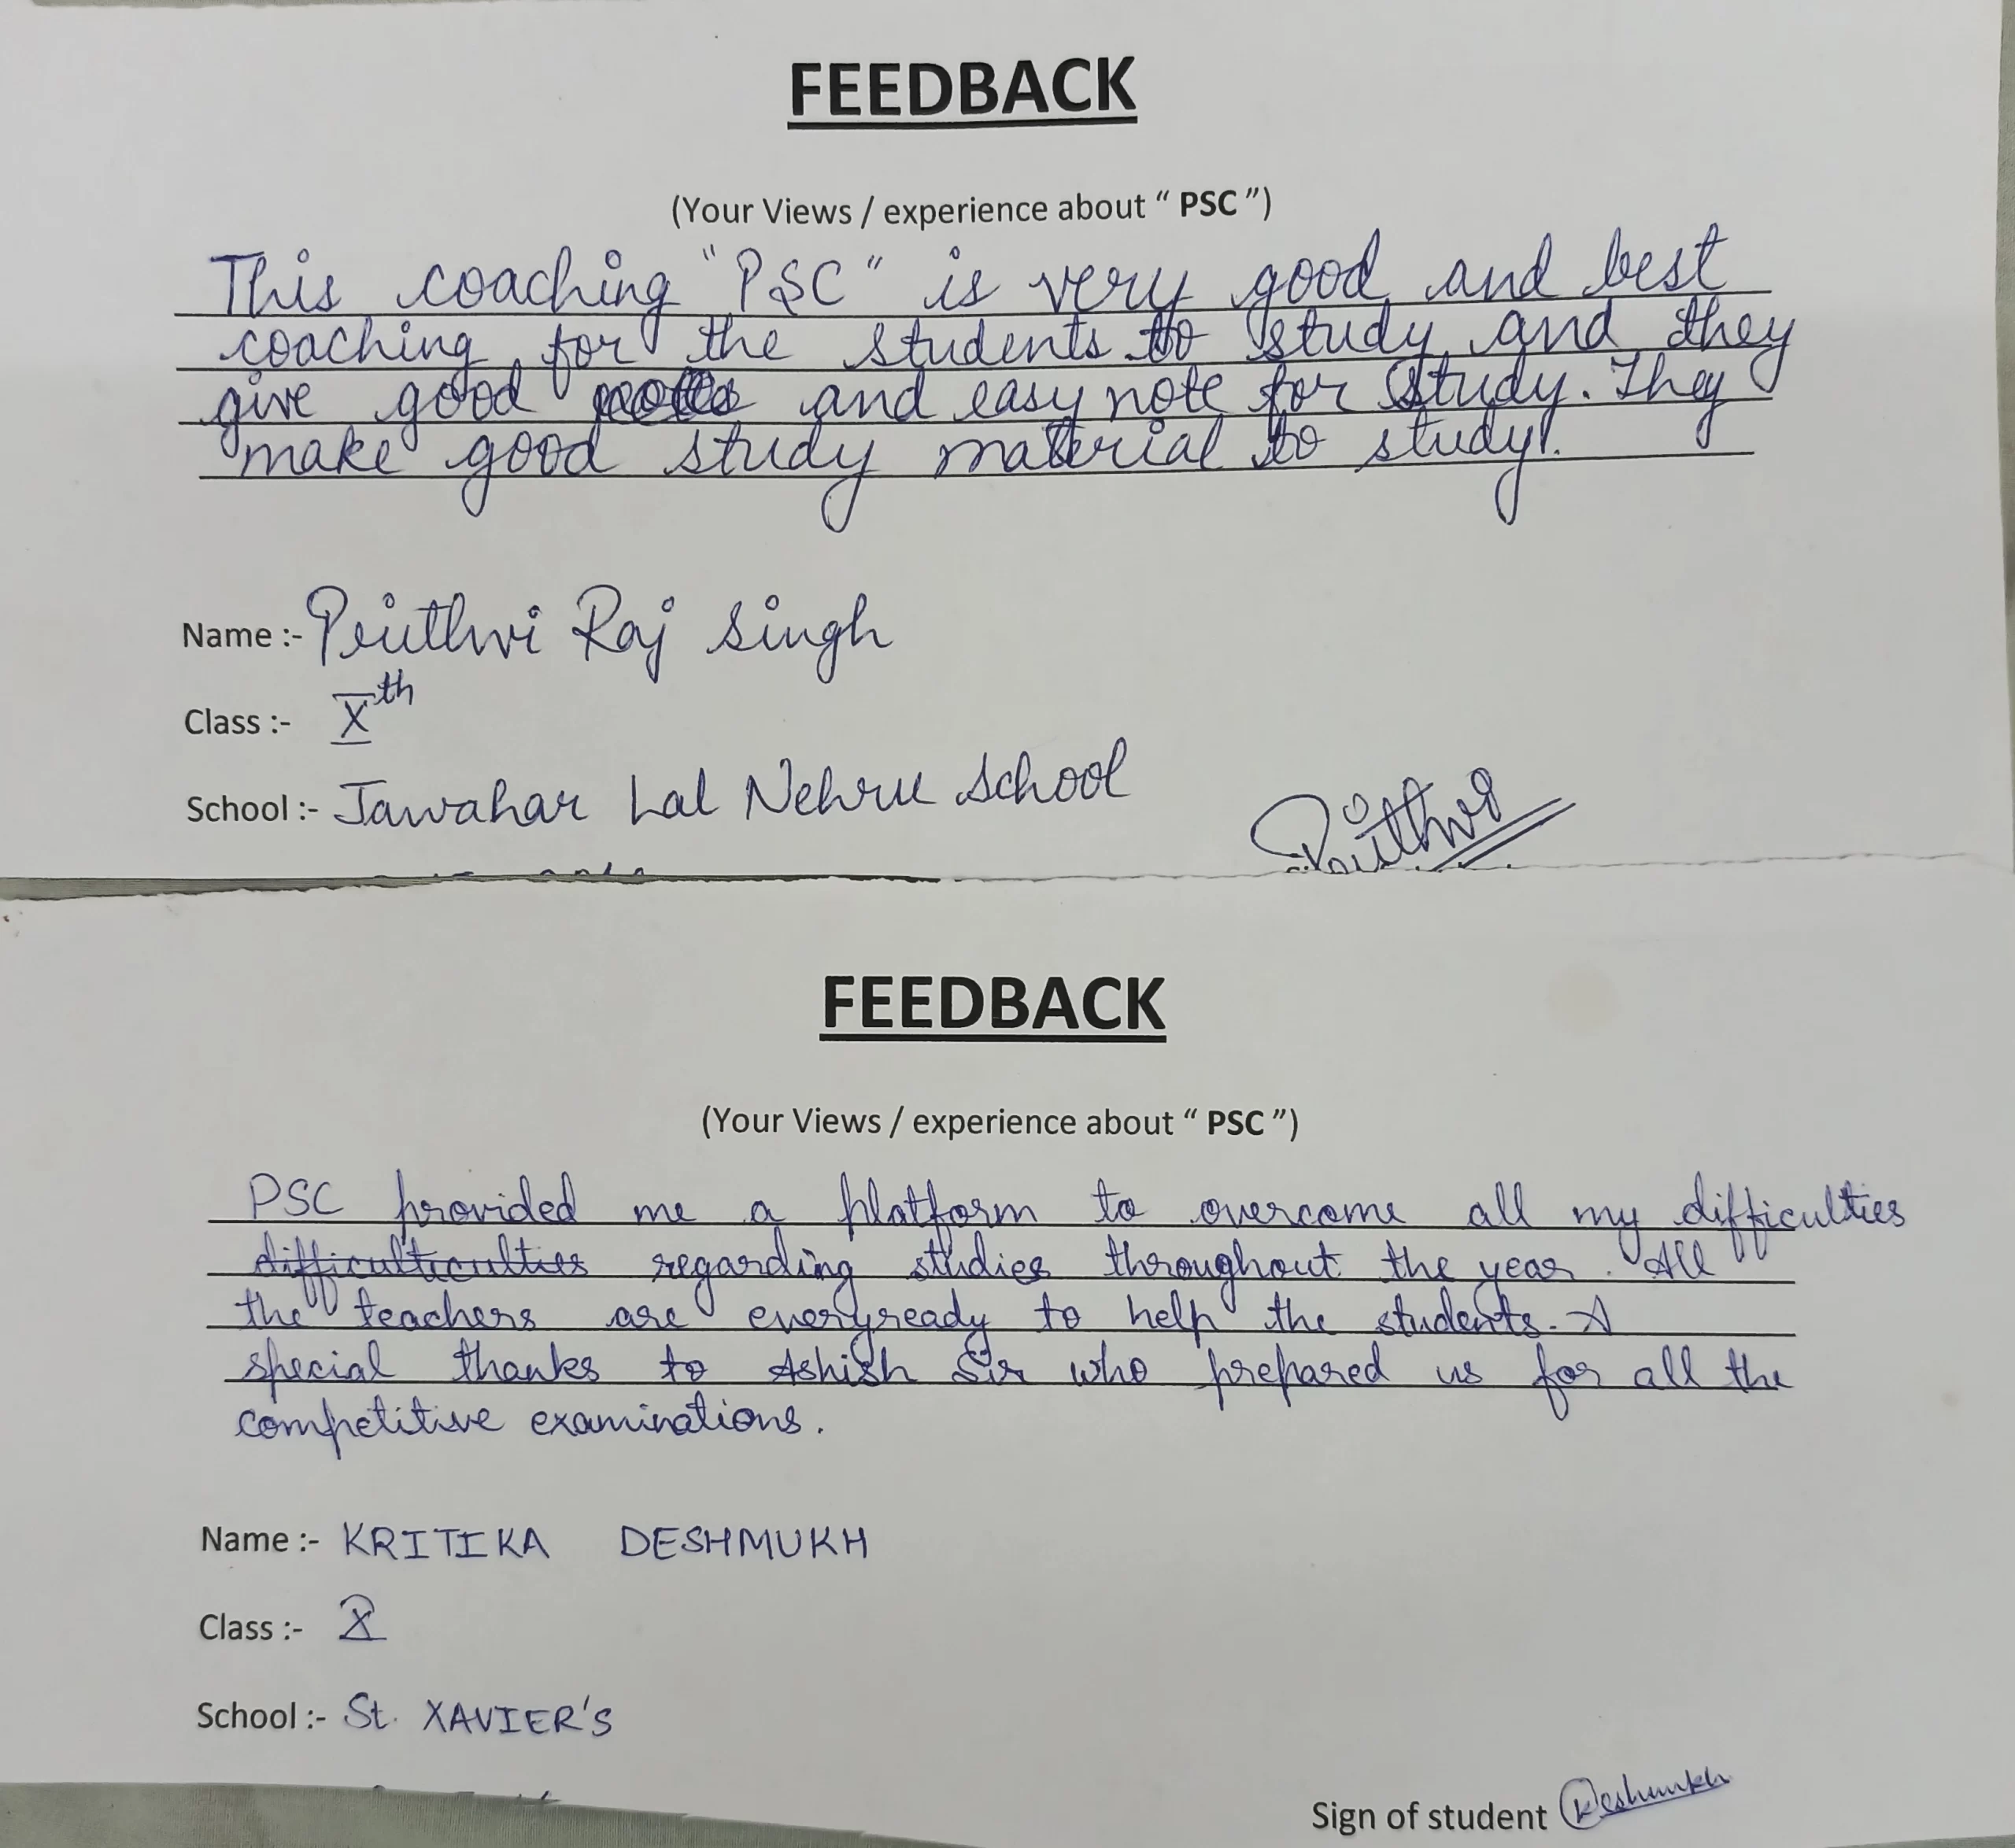 FEEDBACK
(Your Views / experience about “ PSC ”)
This coaching "PSC" is very good and best
coaching for the students to study and they
give good and easy note for study. They
make good study material to study.
Name :- Pruthvi Raj Singh
Class :- Xth
School :- Jawahar Lal Nehru School
Pruthvi
FEEDBACK
(Your Views / experience about “ PSC ”)
PSC provided me a platform to overcome all my difficulties
difficulticulties regarding studies throughout the year. All
the teachers are everyready to help the students. A
special thanks to Ashish Sir who prepared us for all the
competitive examinations.
Name :- KRITIKA DESHMUKH
Class :- X
School :- St. XAVIER'S
Sign of student KDeshmukh